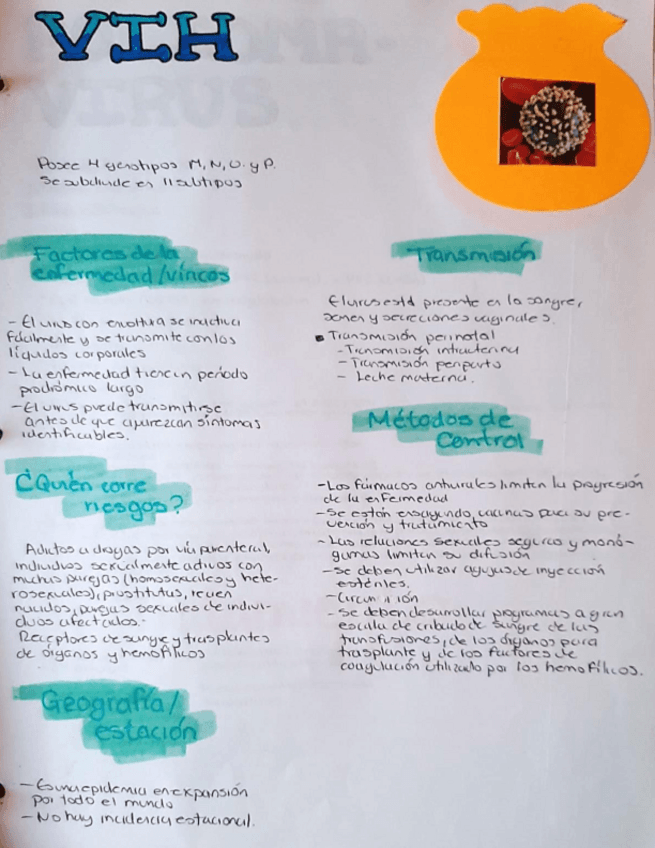 VIH
Posee 4 genotipos M, N, O. y P.
Se subdivide en 11 subtipos
Factores de la
enfermedad/víricos
- El virus con envoltura se inactiva
fácilmente y se transmite con los
líquidos corporales
- La enfermedad tiene un período
prodrómico largo
- El virus puede transmitirse
antes de que aparezcan síntomas
identificables.
¿Quién corre
riesgos?
Adictos a drogas por vía parenteral,
individuos sexualmente activos con
muchas parejas (homosexuales y hete-
rosexuales), prostitutas, recien
nacidos, parejas sexuales de indivi-
duos afectados.
Receptores de sangre y trasplantes
de órganos y hemofílicos
Geografía/
estación
- Es una epidemia en expansión
por todo el mundo
- No hay incidencia estacional.
Transmisión
El virus está presente en la sangre,
semen y secreciones vaginales.
Transmisión perinatal
- Transmisión intrauterina
- Transmisión periparto
- Leche materna.
Métodos de
Control
- Los fármacos antivirales limiten la progresión
de la enfermedad
- Se están ensayando vacunas para su pre-
vención y tratamiento
- Las relaciones sexuales seguras y monó-
gamas limiten su difusión
- Se deben utilizar agujas de inyección
estériles.
- Se deben desarrollar programas a gran
escala de cribado de sangre de las
transfusiones, de los órganos para
trasplante y de los factores de
coagulación utilizado por los hemofílicos.